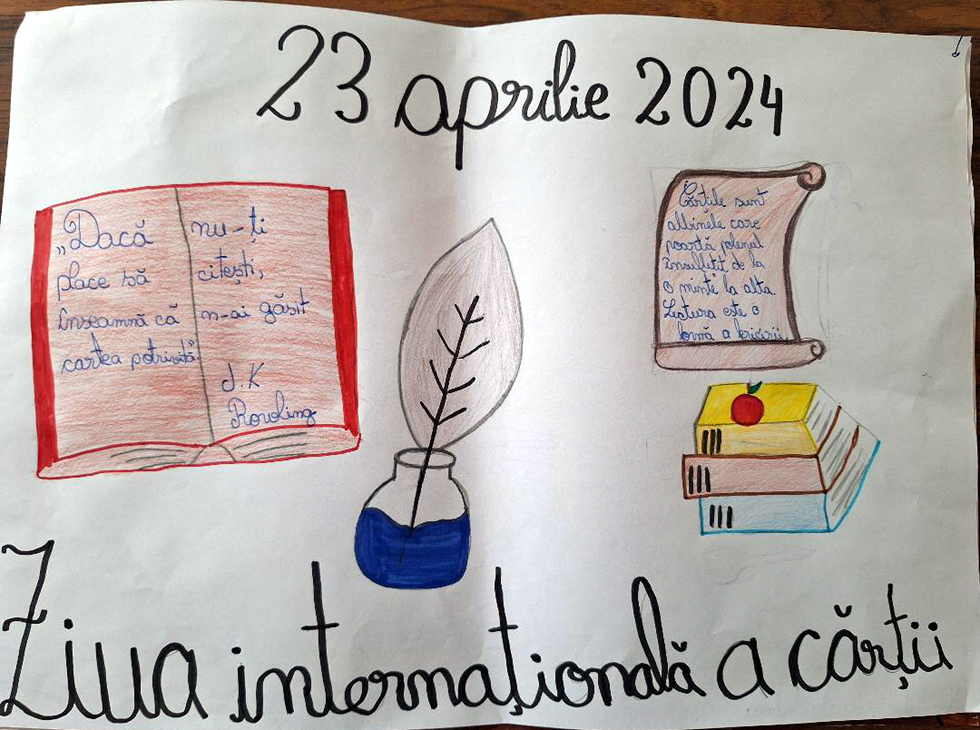 23 aprilie 2024
„Dacă nu-ți
place să citești,
înseamnă că n-ai găsit
cartea potrivită"
J.K
Rowling
Cărțile sunt
albinele care
poartă polenul
însuflețit de la
o minte la alta.
Lectura este o
formă a fericirii
Ziua internațională a cărții